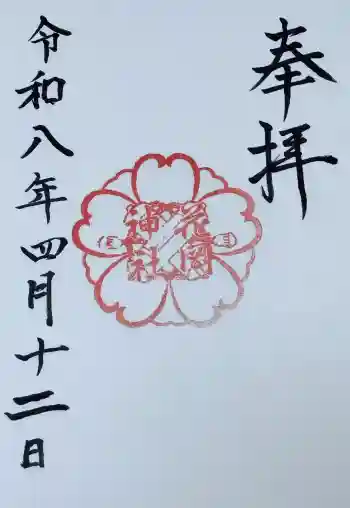 奉拝
花岡
福社
令和八年四月十二日